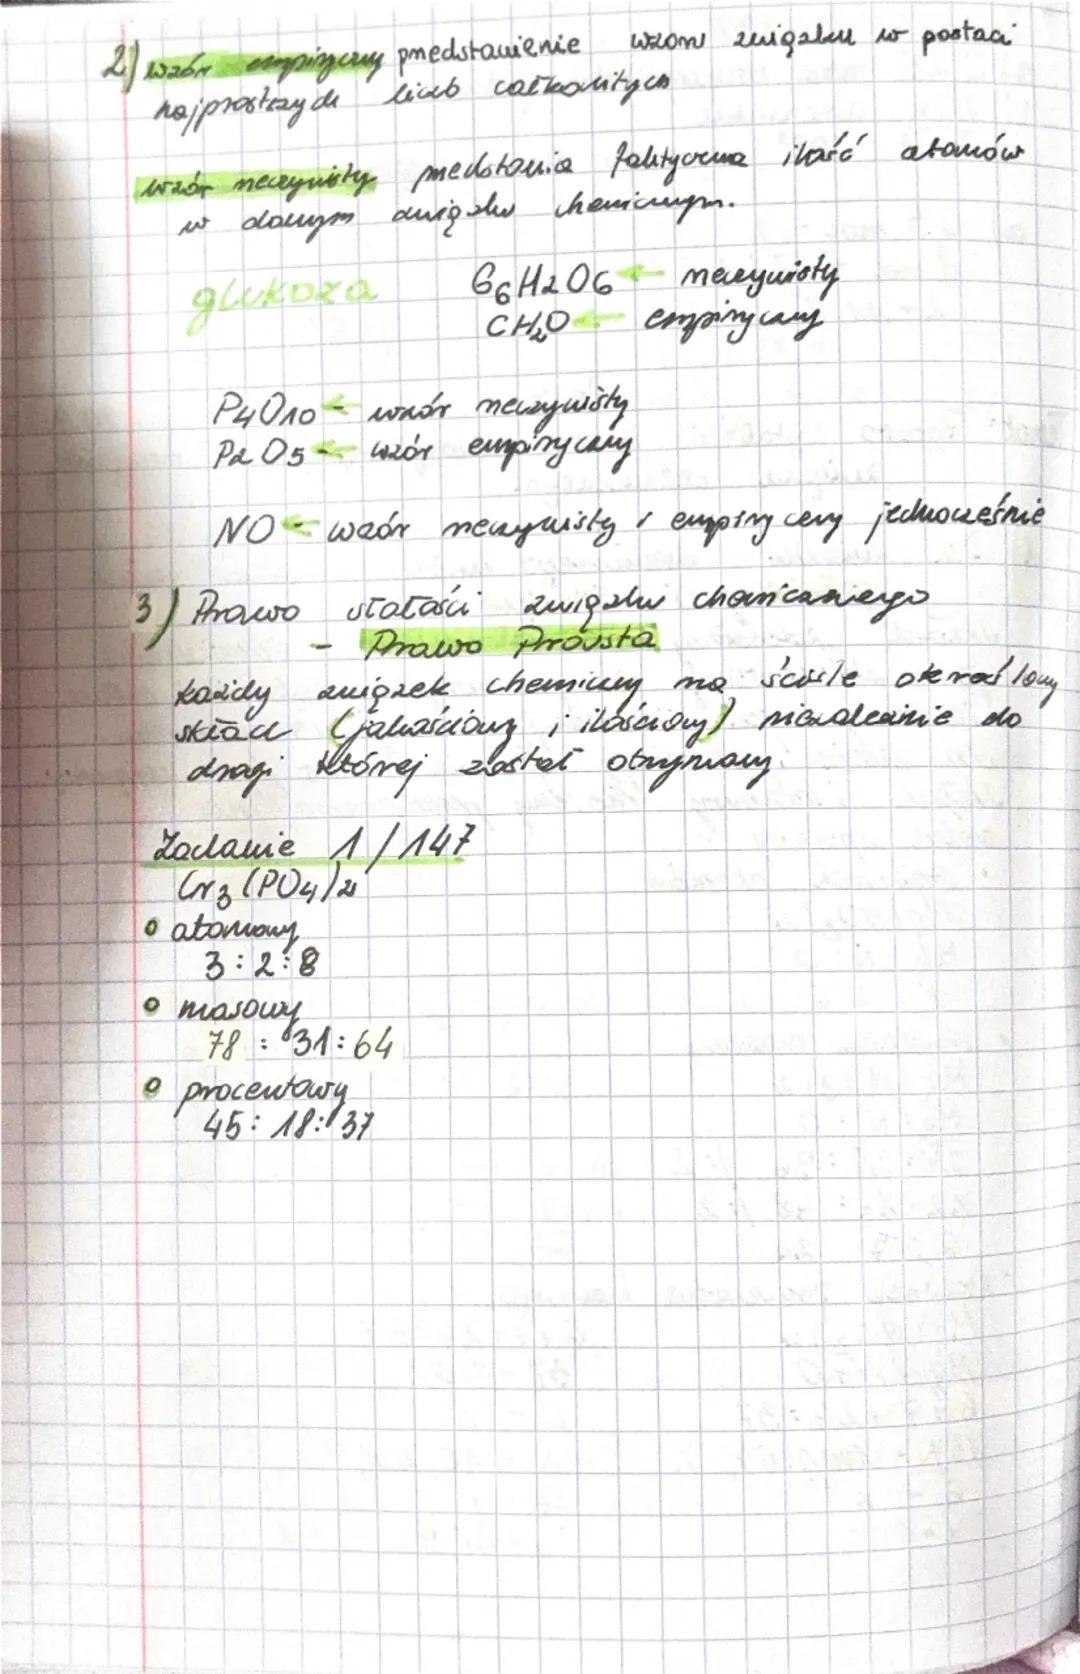 2) wzór empiryczny przedstawienie wzoru związku w postaci
najprostrzych liczb całkowitych
wzór rzeczywisty przedstawia faktyczna ilość atomów
w danym związku chemicznym.
glukoza C6H2O6 ← rzeczywisty
CH2O ← empiryczny
P4O10 ← wzór rzeczywisty
P2O5 ← wzór empiryczny
NO ← wzór rzeczywisty i empiryczny jednocześnie
3) Prawo stałości związku chemicznego
- Prawo Prousta
każdy związek chemiczny ma ściśle określony
skład (jakościowy i ilościowy) niezależnie do
drogi której został otrzymany.
Zadanie 1/147
Cr3(PO4)2
• atomowy
3:2:8
• masowy
78 : 31:64
• procentowy
45: 18: 37